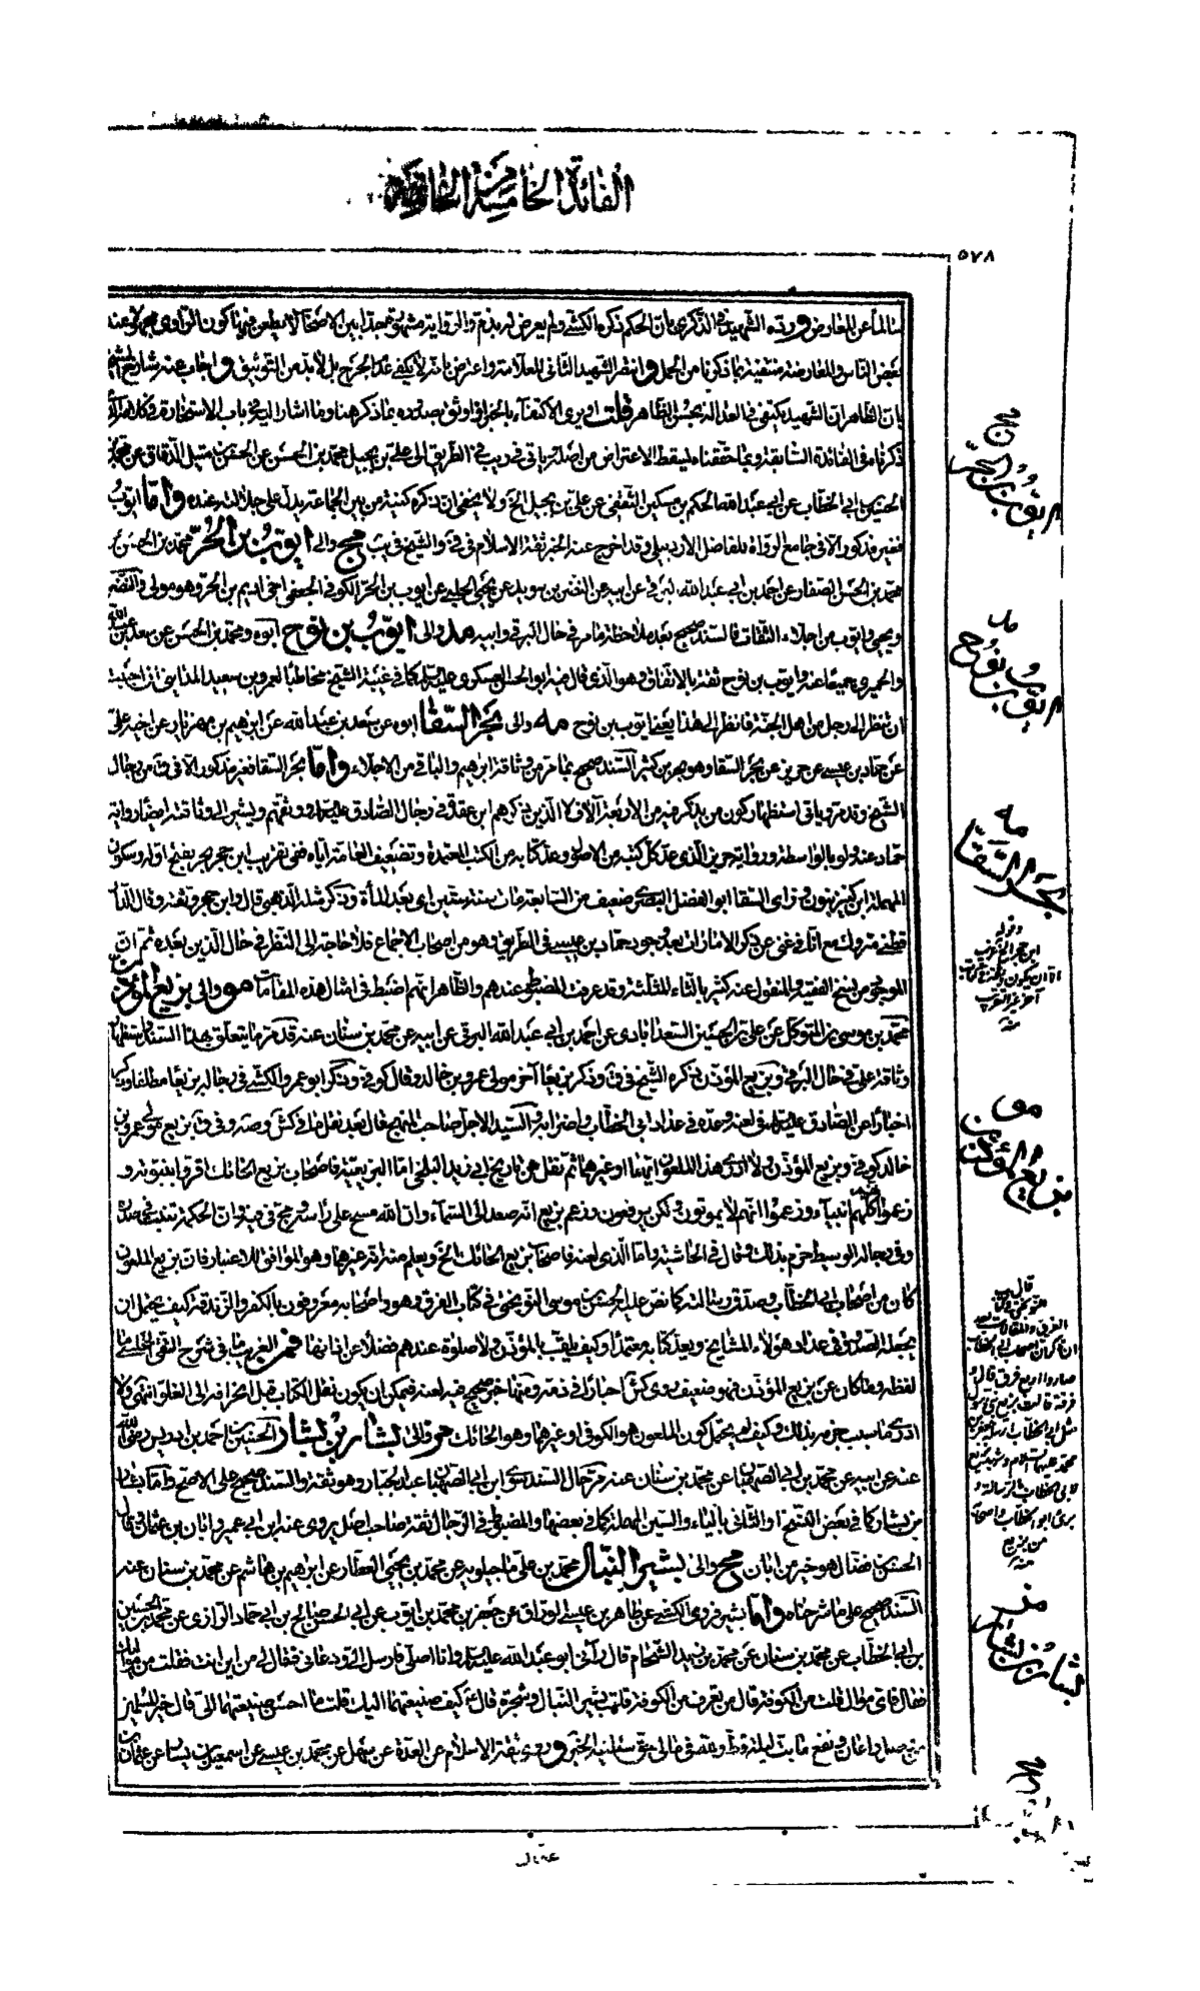 الفائدة الخامسة من الخاتمة
٥٧٨
عن المعارض ورده الشهيد في الذكرى بان الحكم ذكره الكشي ولم يعرض له بذم والرواية مشهورة بين الاصحاب لا يطعن فيها كون الراوي مجهولا عند
بعض الناس والمعارضة منتفية بما ذكرنا من الحمل وانتصر الشهيد الثاني للعلامة واعترض بانه لا يكفي عدم الجرح بل لا بد من التوثيق واجاب عنه
بان الظاهر ان الشهيد يكتفي في العدالة بحسن الظاهر قلت او يرى الاكتفاء بالخبر الموثوق بصدوره بما ذكر هنا وما اشار اليه في باب الاستخارة
ذكرناه في الفائدة السابقة وبما حققناه ليقط الاعتراض من اصله وياتي في الطريق الى علي بن بجيل محمد بن الحسن عن الحسن بن متيل الدقاق عن محمد بن
الحسين بن ابي الخطاب عن ابي عبد الله الحكم بن مسكين الثقفي عن علي بن بجيل الخ ولا يخفى ان ذكره كنيته من بين الجماعة يدل على جلالته عنده واما ايوب
فغير مذكور الا في جامع الرواة للفاضل الاردبيلي وقد اخرج عنه الخبر ثقة الاسلام في في والشيخ في يب مج والى ايوب بن الحر محمد بن الحسن عن
محمد بن الحسن الصفار عن احمد بن ابي عبد الله البرقي عن ابيه عن النضر بن سويد عن يحيى الحلبي عن ايوب بن الحر الكوفي الجعفي اخي اديم بن الحر وهو مولى والنضر
ويحيى وايوب من اجلاء الثقات فالسند صحيح بعد ملاحظة ما مر في حال البرقي وابيه مد والى ايوب بن نوح ابوه ومحمد بن الحسن عن سعد بن عبد الله
والحميري جميعا عنه وايوب بن نوح ثقة بالاتفاق وهو الذي قال فيه ابو الحسن العسكري عليه السلام كما في غيبة الشيخ مخاطبا لعمرو بن سعيد المدايني ان احببت
ان تنظر الى رجل من اهل الجنة فانظر الى هذا يعني ايوب بن نوح مه والى بحر السقا ابوه عن سعد بن عبد الله عن ابراهيم بن مهزيار عن اخيه علي
عن حماد بن عيسى عن حريز عن بحر السقا وهو بحر بن كثير السند صحيح بما مر من وثاقة ابراهيم والباقي من الاجلاء واما بحر السقا فغير مذكور الا في ق من رجال
الشيخ وقد مر وياتي استظهار كون من يذكر فيه من الاربعة آلاف الذين ذكرهم ابن عقدة في رجال الصادق عليه السلام ووثقهم ويشير الى وثاقته ايضا رواية
حماد عنه ولو بالواسطة ورواية حريز الذي عد كل كتبه من الاصول وعد كتابه من الكتب المعتمدة وتضعيف العامة اياه ففي تقريب ابن حجر بحر بفتح اوله وسكون
المهملة ابن كنيز بنون وزاى السقا ابو الفضل البصري ضعيف من السابعة مات سنة ستين اي بعد المأة وذكر مثله الذهبي قال وابن حجر وثقه وقال الدار
قطني متروك مع انا في غنى عن ذكر الامارات بعد وجود حماد بن عيسى في الطريق وهو من اصحاب الاجماع فلا حاجة الى النظر في حال الذين بعده ثم ان
الموجود من نسخ الفقيه والمنقول عنه كثير بالثاء المثلثة وقد عرفت المضبوط عندهم والظاهر انهم اضبط في امثال هذه المقامات مو والى بزيع المؤذن
محمد بن موسى بن المتوكل عن علي بن الحسين السعدابادي عن احمد بن ابي عبد الله البرقي عن ابيه عن محمد بن سنان عنه قد مر ما يتعلق بهذا السند
وثاقة علي في حال البرقي وبزيع المؤذن ذكره الشيخ في ق وذكر بزيعا آخر مولى عمرو بن خالد وقال كوفي وذكر ابو عمرو الكشي في رجاله بزيعا مطلقا وذكر
اخبارا عن الصادق عليه السلام في لعنه وعده في عداد ابي الخطاب واضرابه والسيد الاجل صاحب المنهج قال بعد نقل ما في كش وصه وفي ق بزيع مولى عمرو بن
خالد كوفي وبزيع المؤذن ولا ادري هذا الملعون ايهما او غيرهما ثم نقل عن تاريخ ابي زيد البلخي اما البزيعية فاصحاب بزيع الحائك اقروا بنبوته و
زعموا كلهم انبياء وزعموا انهم لا يموتون ولكن يرفعون وزعم بزيع انه صعد الى السماء وان الله مسح على راسه ومج في فيه وان الحكمة تنبت في صدره
وفي رجاله الوسيط جزم بذلك وقال في الحاشية واما الذي لعنه فاصحاب بزيع الحائك الخ ويعلم منه انه غيرهما وهو الموافق للاعتبار فان بزيع الملعون
كان من اصحاب ابي الخطاب وصدق برسالته كما نص عليه الحسن بن موسى النوبختي في كتاب الفرق وهو واصحابه معروفون بالكفر والزندقة كيف يحتمل ان
يجعله الصدوق في عداد هؤلاء المشايخ ويعد كتابه معتمدا وكيف يلقب بالمؤذن ولا صلوة عندهم فضلا عن اذانها فمن الغريب ما في شرح التقي المجلسي ما
لفظه وما كان عن بزيع المؤذن فهو ضعيف روى كش اخبارا في ذمه ومنها خبر صحيح فيه لعنه فيمكن ان يكون نقل الكتاب قبل انحرافه الى الغلو انتهى ولا
ادري ما سبب جزمه بذلك وكيف لم يحتمل كون الملعون هو الكوفي او غيرهما وهو الحائك مز والى بشار بن يسار الحسين بن احمد بن ادريس رضي الله
عنه عن ابيه عن محمد بن ابي الصهبان عن محمد بن سنان عنه مر حال السند سوى ابن ابي الصهبان عبد الجبار وهو ثقة والسند صحيح على الاصح واما بشار
بن بشار كما في بعض النسخ او الثاني بالياء والسين المهملة كما في بعضها والمضبوط في الرجال ثقة صاحب اصل يروي عنه ابن ابي عمير وابان بن عثمان وقال
الحسن بن فضال هو خير من ابان مح والى بشير النبال محمد بن علي ماجيلويه عن محمد بن يحيى العطار عن ابراهيم بن هاشم عن محمد بن سنان عنه
السند صحيح على ما شرحناه واما بشير فروى الكشي عن طاهر بن عيسى الوراق عن جعفر بن محمد بن ايوب عن ابي الحسن صالح بن ابي حماد الرازي عن محمد بن الحسين
بن ابي الخطاب عن محمد بن سنان عن محمد بن زيد الشحام قال رآني ابو عبد الله عليه السلام وانا اصلي فارسل الي ودعاني فقال لي من اين انت فقلت من مواليك
فقال فاي موالي قلت من الكوفة قال من تعرف من الكوفة قلت بشير النبال وشجرة قال وكيف صنيعتهما اليك قلت ما احسن صنيعتهما الي قال خير المسلمين
من وصل واعان ونفع ما بت ليلة قط ولله في مالي حق سئلنيه الخبر وروى ثقة الاسلام عن العدة عن سهل عن محمد بن عيسى عن اسمعيل بن يسار عن عثمان
ايوب بن الحر
مد
ايوب بن نوح
مه
بحر السقا
مو
بزيع المؤذن
مز
بشار بن يسار